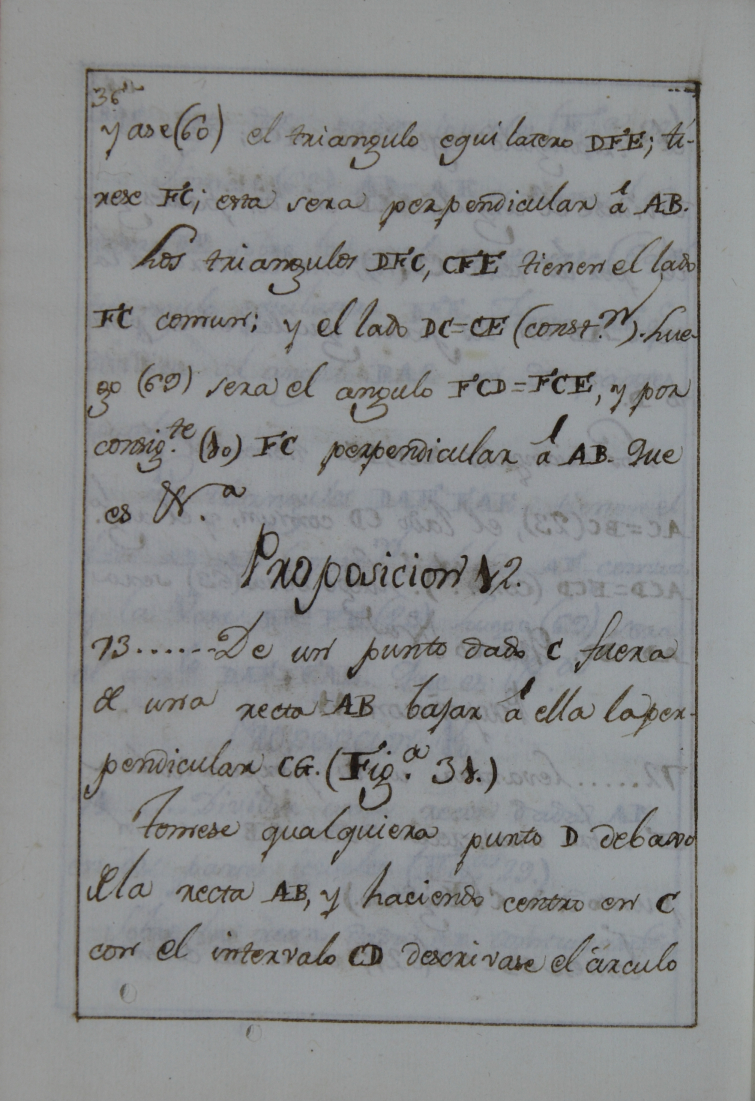 36
y ase (60) el triangulo equilatero DFE; ti-
rese FC; esta sera perpendicular á AB.
Los triangulos DFC, CFE tienen el lado
FC comun; y el lado DC=CE (const.ⁿ). Lue-
go (69) sera el angulo FCD=FCE, y por
consig.te (10) FC perpendicular á AB. Que
es
Proposicion 12.
73......De un punto dado C fuera
de una recta AB bajar á ella la per-
pendicular CG. (Fig.a 31.)
Tomese qualquiera punto D debaxo
de la recta AB, y haciendo centro en C
con el intervalo CD descrivase el circulo